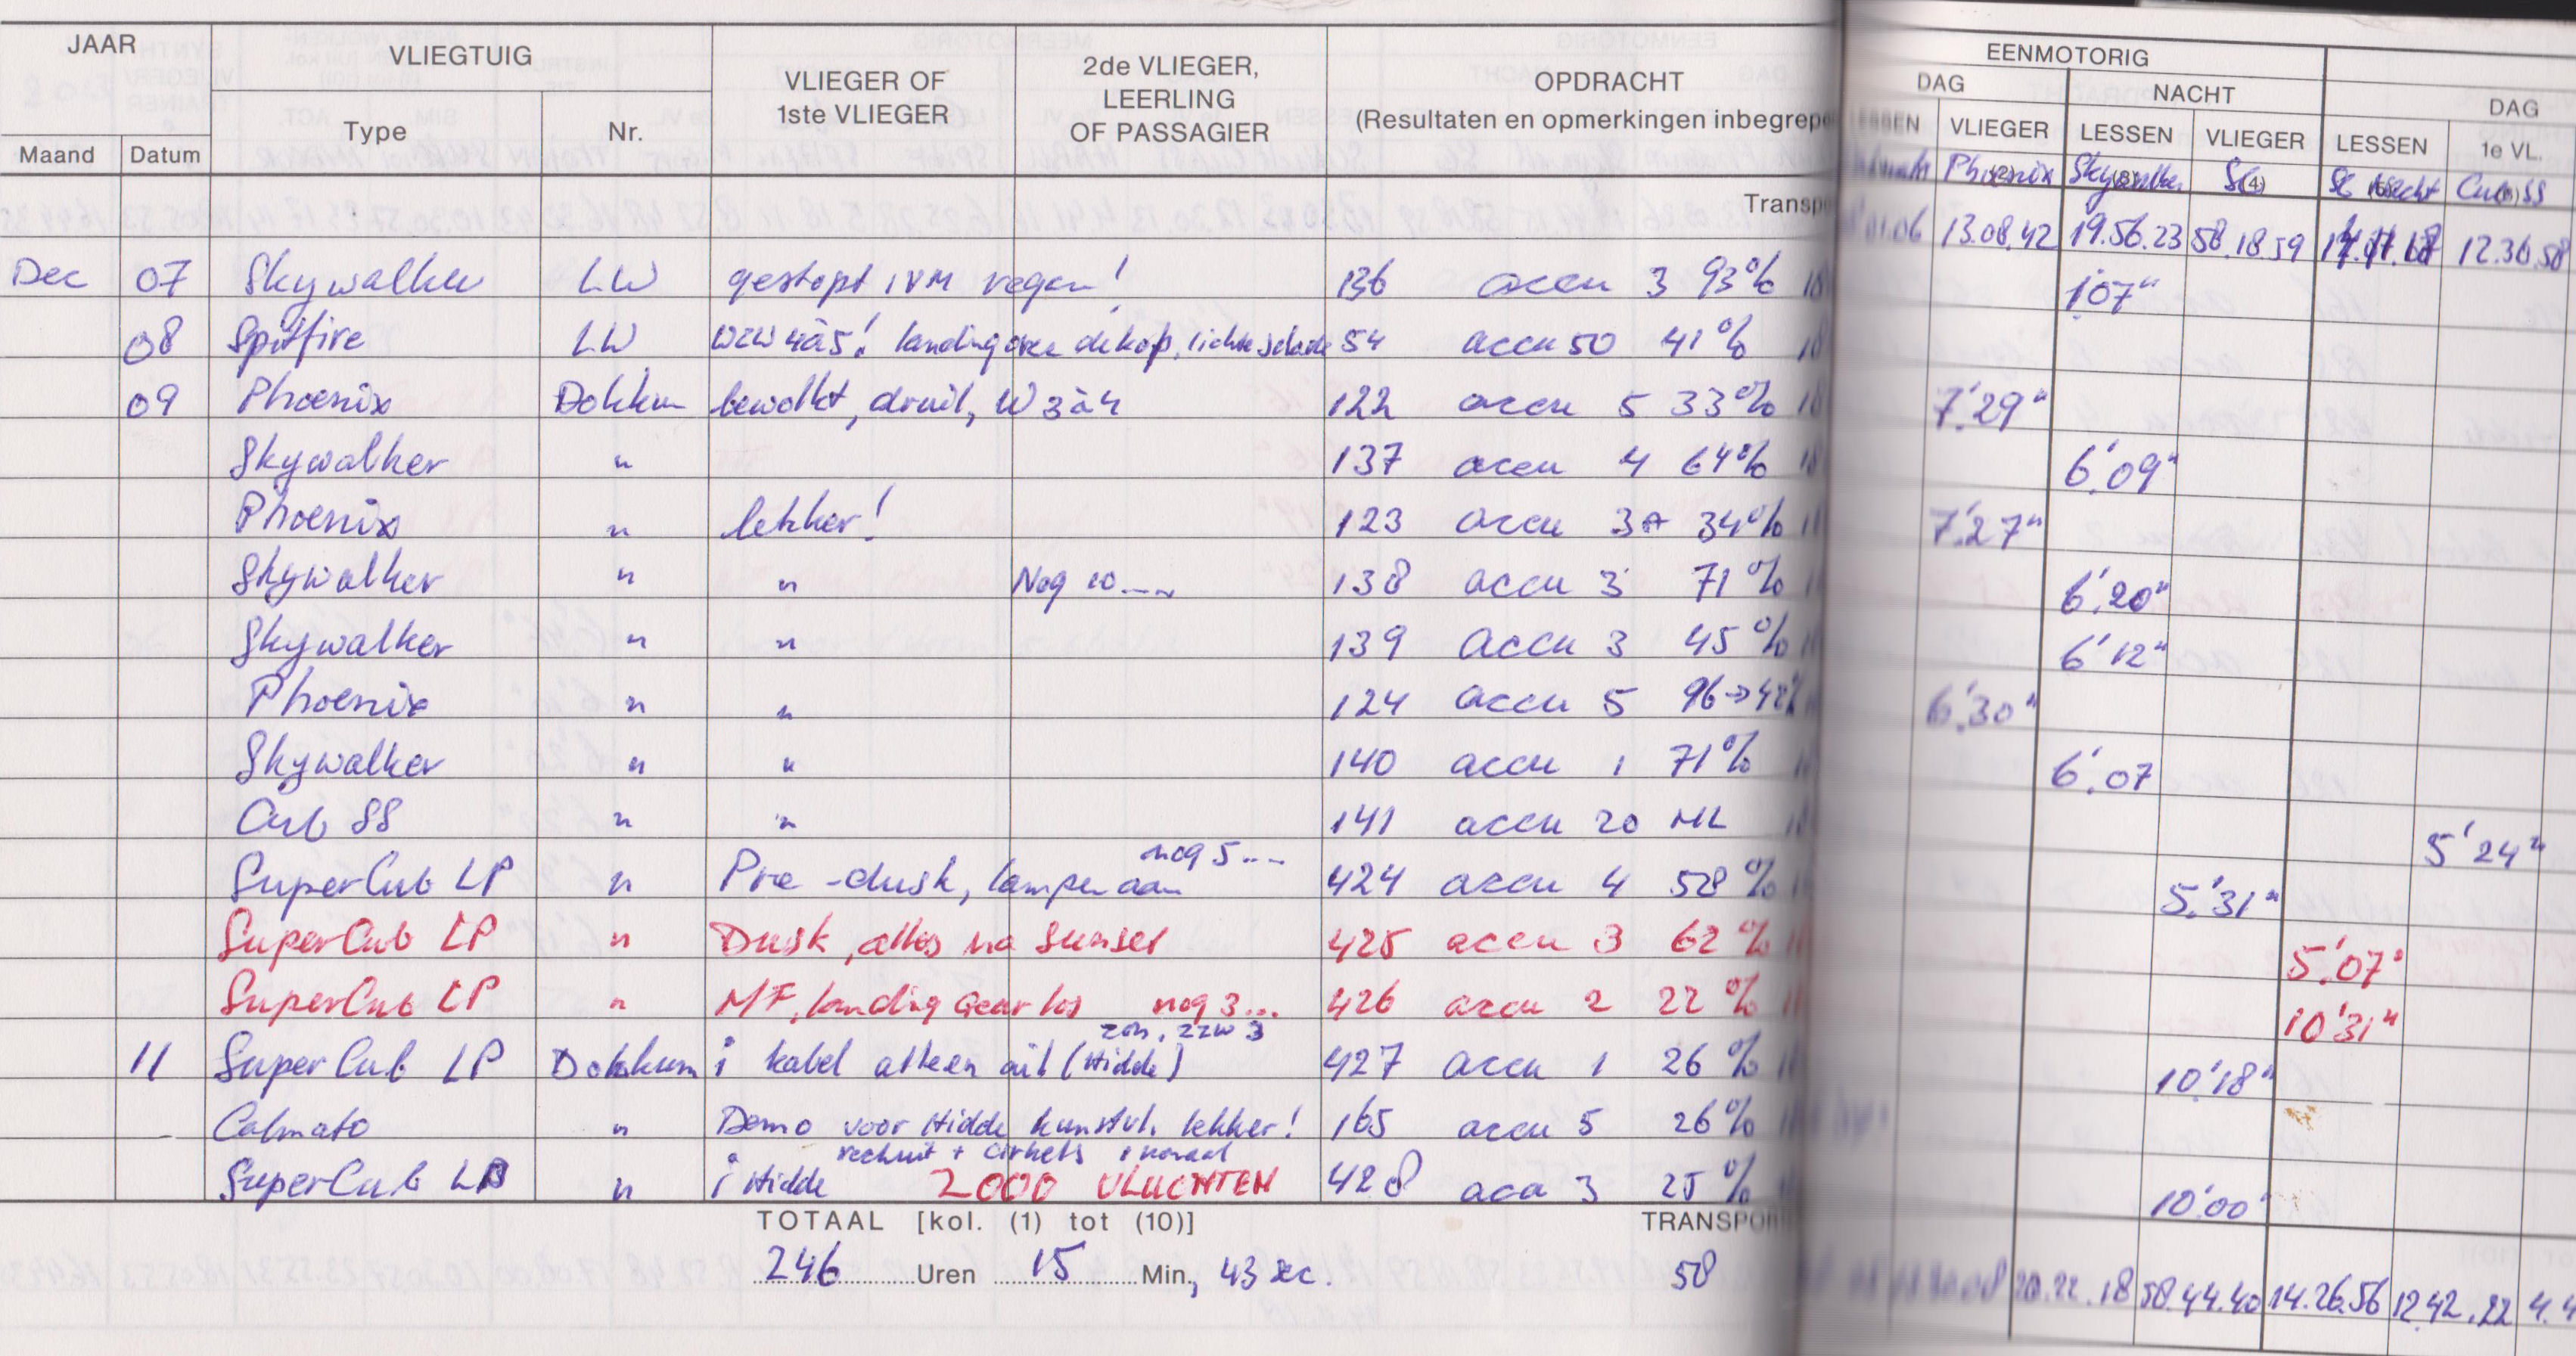 JAAR VLIEGTUIG VLIEGER OF 1ste VLIEGER 2de VLIEGER, LEERLING OF PASSAGIER OPDRACHT (Resultaten en opmerkingen inbegrepe EENMOTORIG
DAG NACHT DAG
Maand Datum Type Nr. VLIEGER LESSEN VLIEGER LESSEN 1e VL.
Phoenix Skywalker SC SC nacht Cub SS
Transpo
01.06 13.08.42 19.56.23 58.18.59 12.36.58
Dec 07 Skywalker LW gestopt IVM regen! 136 accu 3 93% 1'07"
08 Spitfire LW WZW 4à5! landing over de kop, lichte schade 54 accu 50 41%
09 Phoenix Dokkum bewolkt, druil, W 3à4 122 accu 5 33% 7'29"
Skywalker " 137 accu 4 64% 6'09"
Phoenix " lekker! 123 accu 3A 34% 7'27"
Skywalker " " Nog 10 ---- 138 accu 3 71% 6'20"
Skywalker " " 139 accu 3 45% 6'12"
Phoenix " " 124 accu 5 96→42% 6'30"
Skywalker " " 140 accu 1 71% 6'07
Cub SS " " 141 accu 20 ML 5'24"
nog 5 ---
SuperCub LP " Pre-dusk, lampen aan 424 accu 4 58% 5'31"
SuperCub LP " Dusk, alles na sunset 425 accu 3 62% 5'07"
SuperCub LP " MF, landing gear los nog 3... 426 accu 2 22% 10'31"
zon, ZZW 3
11 SuperCub LP Dokkum i kabel alleen uit (Hidde) 427 accu 1 26% 10'18"
Calmato " Demo voor Hidde kunstvl. lekker! 165 accu 5 26%
rechuit + cirkels
SuperCub LP " i Hidde 2000 VLUCHTEN 428 accu 3 25% 10'00"
TOTAAL [kol. (1) tot (10)] TRANSPOR
246 Uren 15 Min, 43 sec. 58 20.22.18 58.44.40 14.26.56 12.42.22 4.4